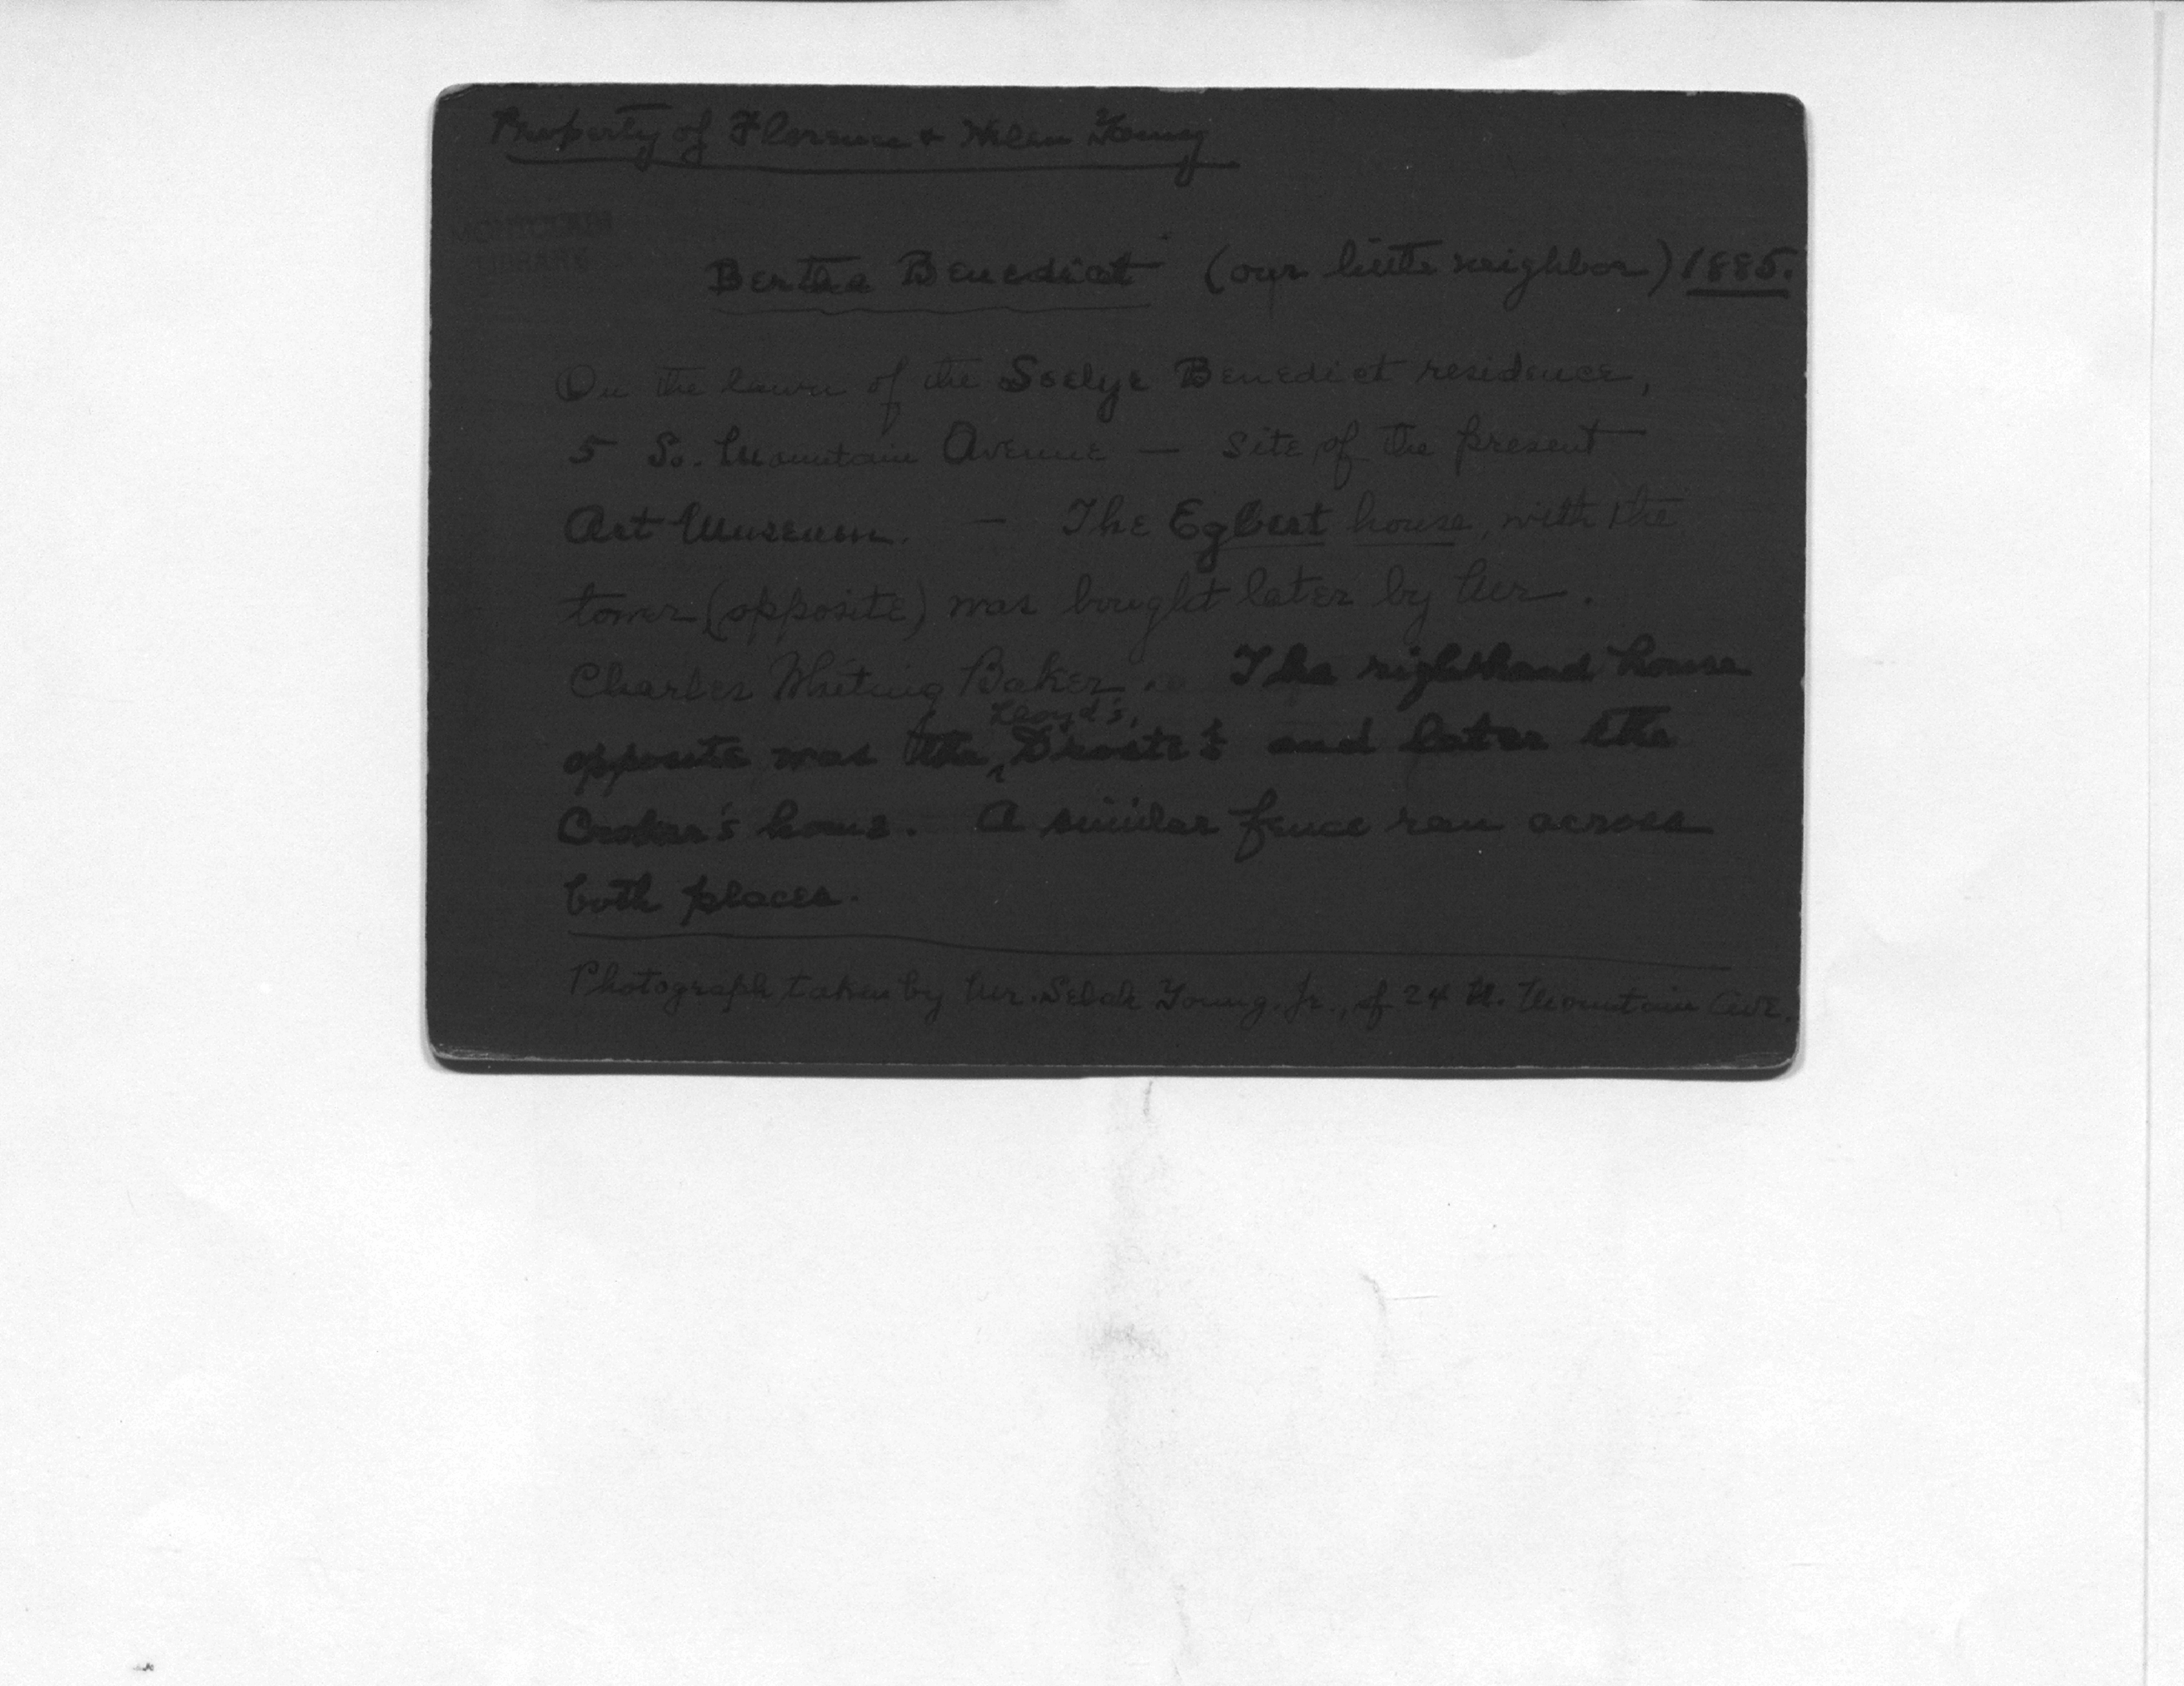 Property of Florence & Helen Young
MONTCLAIR
LIBRARY
Bertha Benedict (our little neighbor) 1885.
On the lawn of the Seelye Benedict residence,
5 So. Mountain Avenue — site of the present
Art Museum. — The Egbert house, with the
tower (opposite) was bought later by Mr.
Charles Whiting Baker. The righthand house
Lloyd's,
opposite was the and later the
home. A similar fence ran across
both places.
Photograph taken by Mr. Selah Young, Jr., of 24 N. Mountain Ave.